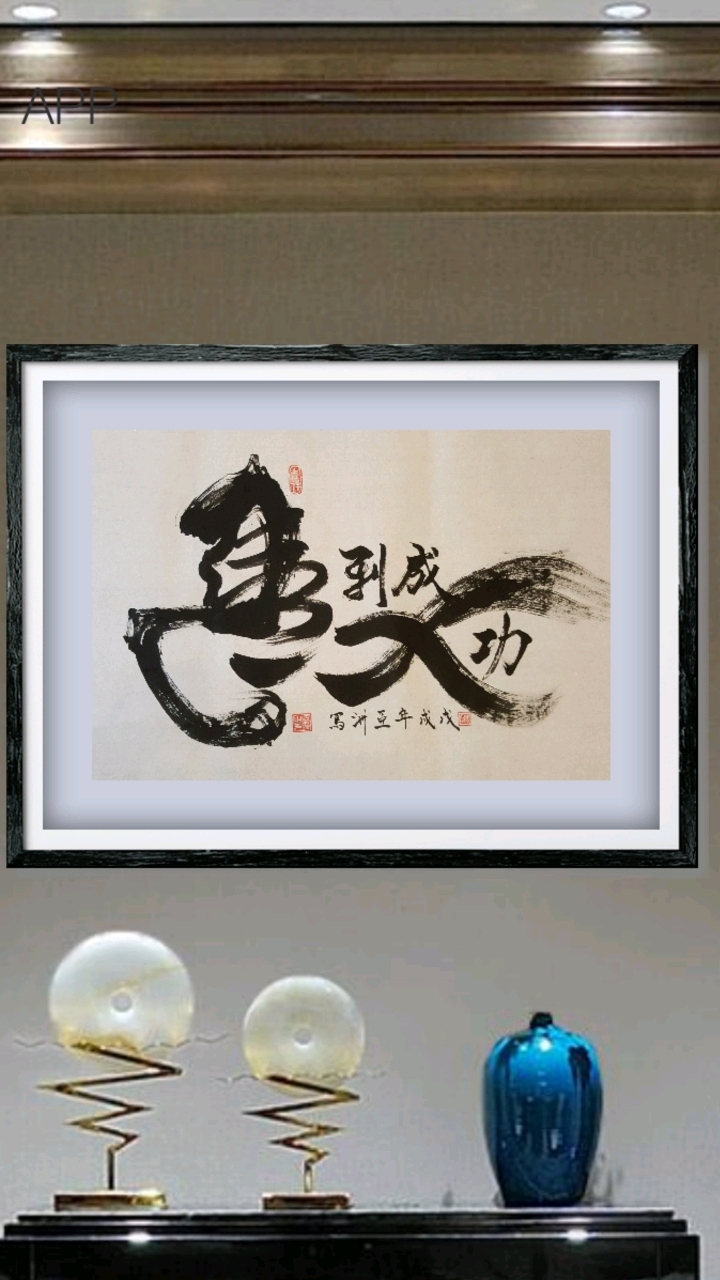 APP
馬到成功
戊戌年亚洲寫